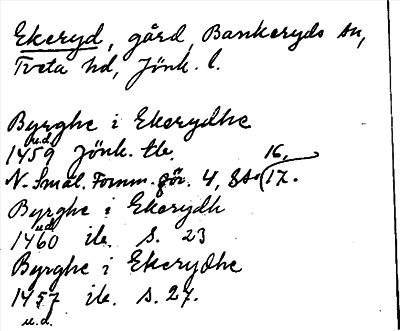 Ekeryd, gård, Bankeryds sn,
Tveta hd, Jönk. l.
Byrghe i Ekerydhe
1459 u.d. Jönk. tb.
N. Smål. Fornm. för. 4, 8 s. 16, 17.
Byrghe i Ekerydh
1460 u.d. ib. s. 23
Byrghe i Ekerydhe
1457 ib. s. 27.
u.d.